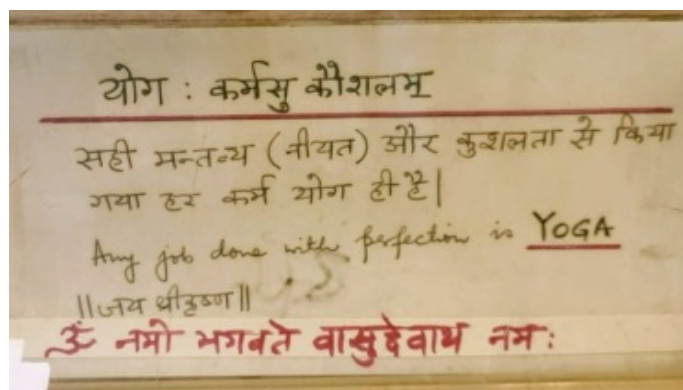 योग : कर्मसु कौशलम्
सही मन्तव्य (नीयत) और कुशलता से किया
गया हर कर्म योग ही है|
Any job done with perfection is YOGA
||जय श्रीकृष्ण||
ॐ नमो भगवते वासुदेवाय नम: